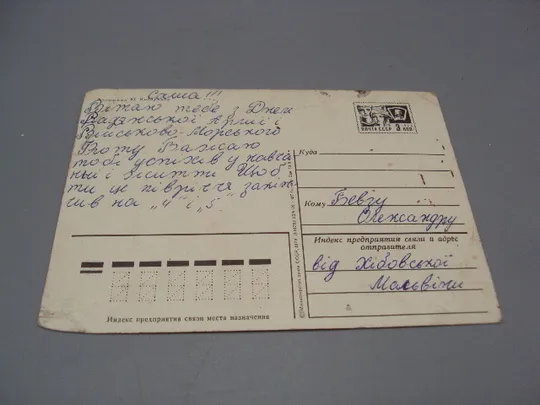 Саша!!!
Вітаю тебе з Днем
Радянської Армії і
Військово-Морського
Флоту. Бажаю
тобі успіхів у навча
нні і житті. Щоб
ти це півріччя закін
чив на "4" і "5".
ПОЧТА СССР 3 коп
Куда
Кому Бевзу
Олександру
Индекс предприятия связи и адрес
отправителя
від Хібовської
Мальвіни
Индекс предприятия связи места назначения